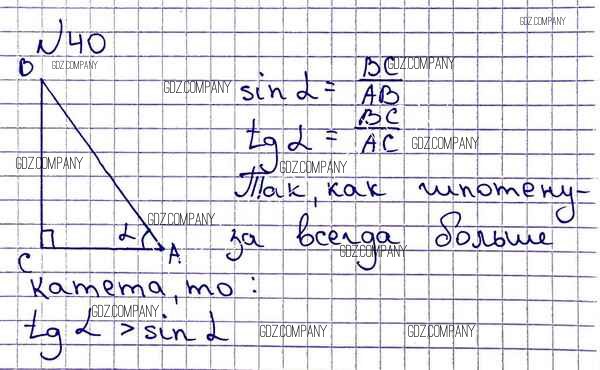 №40
GDZ.COMPANY
B
GDZ.COMPANY
GDZ.COMPANY
sin α = BC/AB
GDZ.COMPANY
tg α = BC/AC
GDZ.COMPANY
GDZ.COMPANY
GDZ.COMPANY
Так, как гипотену-
GDZ.COMPANY
α
A
за всегда больше
GDZ.COMPANY
C
катета, то:
GDZ.COMPANY
tg α > sin α
GDZ.COMPANY
GDZ.COMPANY